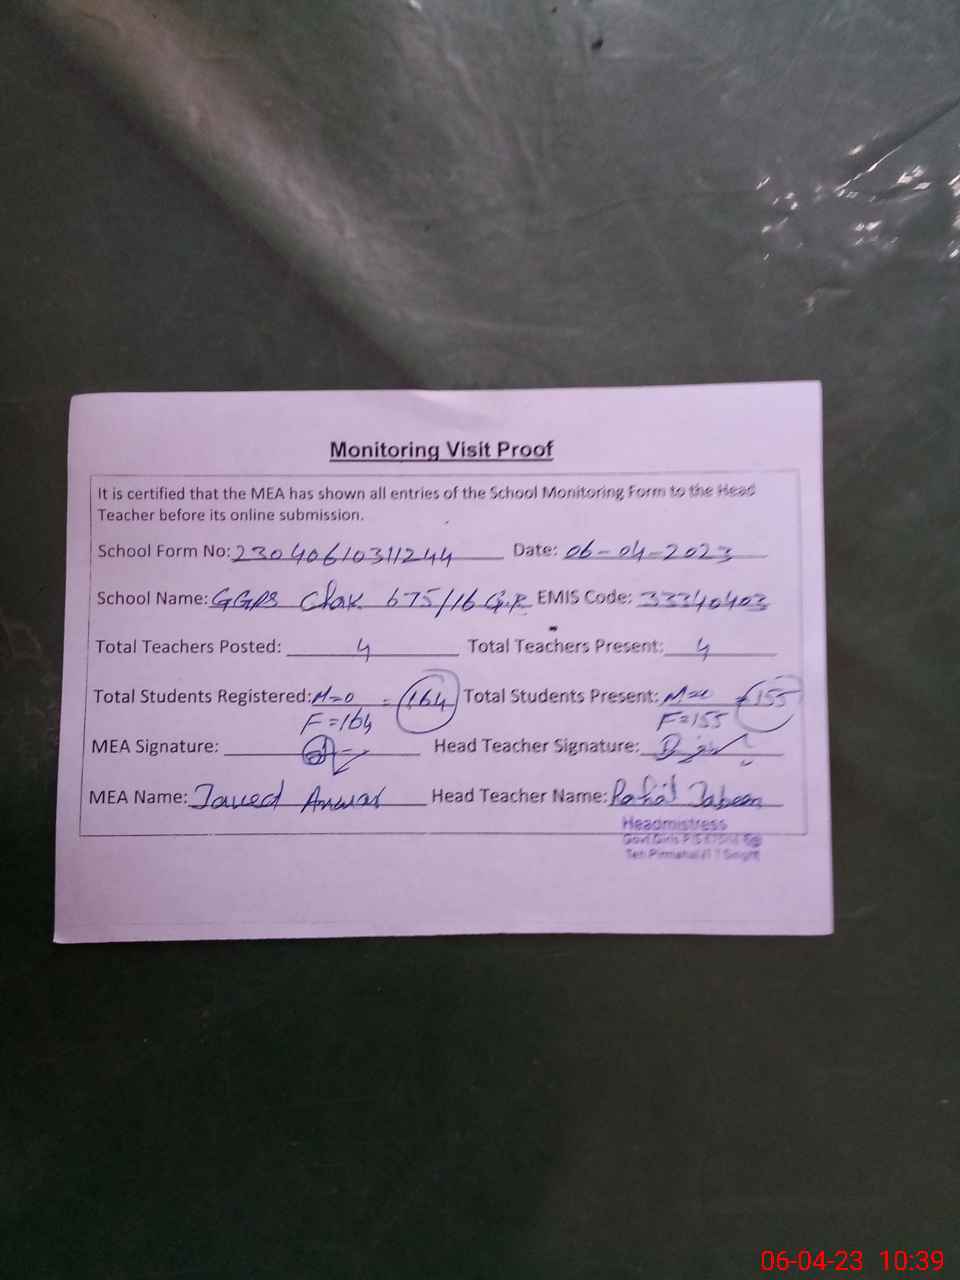 Monitoring Visit Proof
It is certified that the MEA has shown all entries of the School Monitoring Form to the Head
Teacher before its online submission.
School Form No: 23040610311244 Date: 06-04-2023
School Name: GGPS Chak 675/16 G.B EMIS Code: 33340403
Total Teachers Posted: 4 Total Teachers Present: 4
Total Students Registered: M=0 = 164 Total Students Present: M=0 = 155
F=164 F=155
MEA Signature: Head Teacher Signature:
MEA Name: Javed Anwar Head Teacher Name: Jabeen
Headmistress
Govt. Girls P/S
Teh. Pirmahal
06-04-23 10:39